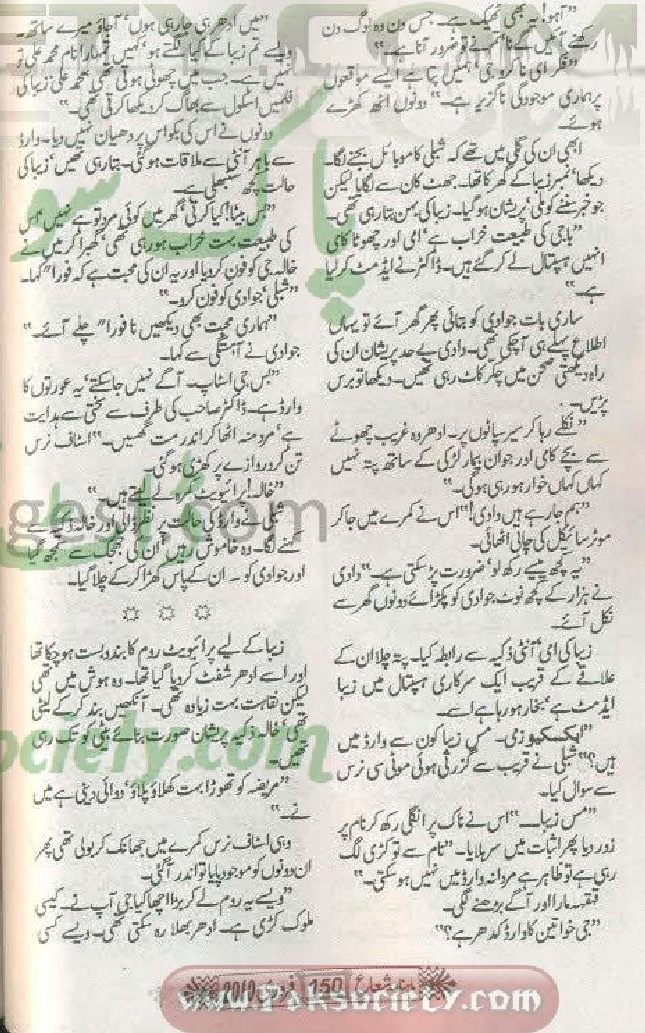 ”آہو! یہ بھی ٹھیک ہے۔ جس دن وہ لوگ دن
رکھنے آئیں گے نا‘ تم نے تو ضرور آنا ہے۔“
”فکر ای نا کرو جی! ہمیں پتا ہے ایسے موقعوں
پر ہماری موجودگی ناگزیر ہے۔“ دونوں اٹھ کھڑے
ہوئے۔
ابھی ان کی گلی میں تھے کہ شبلی کا موبائل بجنے لگا۔
دیکھا‘ نمبر زیبا کے گھر کا تھا۔ جھٹ کان سے لگایا لیکن
جو خبر سننے کو ملی‘ پریشان ہو گیا۔ زیبا کی بہن بتا رہی تھی۔
”باجی کی طبیعت خراب ہے‘ امی اور چھوٹا کامی
انہیں ہسپتال لے کر گئے ہیں۔ ڈاکٹر نے ایڈمٹ کر لیا
ہے۔“
ساری بات جوادی کو بتائی پھر گھر آئے تو یہاں
اطلاع پہلے ہی آ چکی تھی۔ دادی بے حد پریشان ان کی
راہ دیکھتی صحن میں چکر کاٹ رہی تھیں۔ دیکھا تو برس
پڑیں۔
”نکلے رہا کر سیر سپاٹوں پر۔ ادھر وہ غریب چھوٹے
سے بچے کامی اور جوان بیمار لڑکی کے ساتھ پتہ نہیں
کہاں کہاں خوار ہو رہی ہو گی۔“
”ہم جا رہے ہیں دادی!“ اس نے کمرے میں جا کر
موٹر سائیکل کی چابی اٹھائی۔
”یہ کچھ پیسے رکھ لو‘ ضرورت پڑ سکتی ہے۔“ دادی
نے ہزار کے کچھ نوٹ جوادی کو پکڑائے دونوں گھر سے
نکل آئے۔
زیبا کی امی‘ آنٹی ذکیہ سے رابطہ کیا۔ پتہ چلا ان کے
علاقے کے قریب ایک سرکاری ہسپتال میں زیبا
ایڈمٹ ہے‘ بخار ہو رہا ہے اسے۔
”ایکسکیوزمی۔ مس زیبا کون سے وارڈ میں
ہیں؟“ شبلی نے قریب سے گزرتی ہوئی موٹی سی نرس
سے سوال کیا۔
”مس زیبا۔“ اس نے ناک پر انگلی رکھ کر نام پر
زور دیا پھر اثبات میں سر ہلایا۔ ”نام سے تو کڑی لگ
رہی ہے تو ظاہر ہے مردانہ وارڈ میں نہیں ہو سکتی۔“
قہقہہ مارا اور آگے بڑھنے لگی۔
”جی خواتین کا وارڈ کدھر ہے؟“
”میں ادھر ہی جا رہی ہوں‘ آ جاؤ میرے ساتھ۔
ویسے تم زیبا کے کیا لگتے ہو‘ کہیں تمہارا نام محمد علی تو
نہیں ہے۔ جب میں چھوٹی ہوتی تھی‘ محمد علی زیبا کی
فلمیں اسکول سے بھاگ کر دیکھا کرتی تھی۔“
دونوں نے اس کی بکواس پر دھیان نہیں دیا۔ وارڈ
سے باہر آنٹی سے ملاقات ہو گئی۔ بتا رہی تھیں‘ زیبا کی
حالت کچھ سنبھلی ہے۔
”بس بیٹا! کیا کرتی‘ گھر میں کوئی مرد تو ہے نہیں‘ اس
کی طبیعت بہت خراب ہو رہی تھی‘ گھبرا کر میں نے
خالہ جی کو فون کر دیا اور یہ ان کی محبت ہے کہ فوراً“ کہا۔
”شبلی‘ جوادی کو فون کرو۔“
”ہماری محبت بھی دیکھیں نا فوراً“ چلے آئے۔“
جوادی نے آہستگی سے کہا۔
”بس جی اسٹاپ۔ آگے نہیں جا سکتے‘ یہ عورتوں کا
وارڈ ہے۔ ڈاکٹر صاحب کی طرف سے سختی سے ہدایت
ہے‘ مرد منہ اٹھا کر اندر مت گھسیں۔“ اسٹاف نرس
تن کر دروازے پر کھڑی ہو گئی۔
”خالہ! پرائیویٹ کمرہ لے لیتے ہیں۔“
شبلی نے وارڈ کی حالت پر نظر ڈالی اور خالہ ذکیہ سے
کہنے لگا۔ وہ خاموش رہیں‘ ان کی جھجک سے سمجھ گیا
اور جوادی کو۔ ان کے پاس کھڑا کر کے چلا گیا۔
☆ ☆ ☆
زیبا کے لیے پرائیویٹ روم کا بندوبست ہو چکا تھا
اور اسے ادھر شفٹ کر دیا گیا تھا۔ وہ ہوش میں تھی
لیکن نقاہت بہت زیادہ تھی۔ آنکھیں بند کر کے لیٹی
تھی‘ خالہ ذکیہ پریشان صورت بنائے بیٹی کو تک رہی
تھیں۔
”مریضہ کو تھوڑا بہت کھلاؤ پلاؤ‘ دوائی دینی ہے میں
نے۔“
وہی اسٹاف نرس کمرے میں جھانک کر بولی تھی پھر
ان دونوں کو موجود پایا تو اندر آ گئی۔
”ویسے یہ روم لے کر بڑا اچھا کیا جی آپ نے۔ کیسی
ملوک کڑی ہے۔ ادھر بھلا رہ سکتی تھی۔ ویسے کسی
ماہنامہ شعاع 150 فروری 2010
www.Paksociety.com